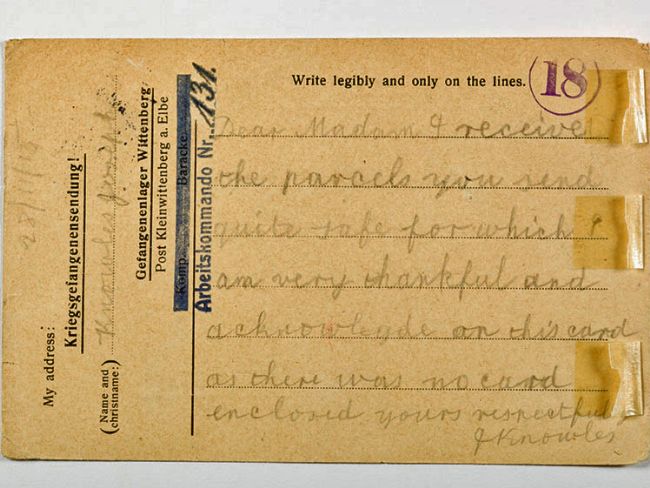 Write legibly and only on the lines.
18
Dear Madam I receive
the parcels you send
quite safe for which I
am very thankful and
acknowlegde on this card
as there was no card
enclosed yours respectfully
J Knowles
My address:
Kriegsgefangenensendung!
(Name and
christiname:)
Knowles Joseph
Gefangenenlager Wittenberg
Post Kleinwittenberg a. Elbe
Komp. Baracke
Arbeitskommando Nr. 131.